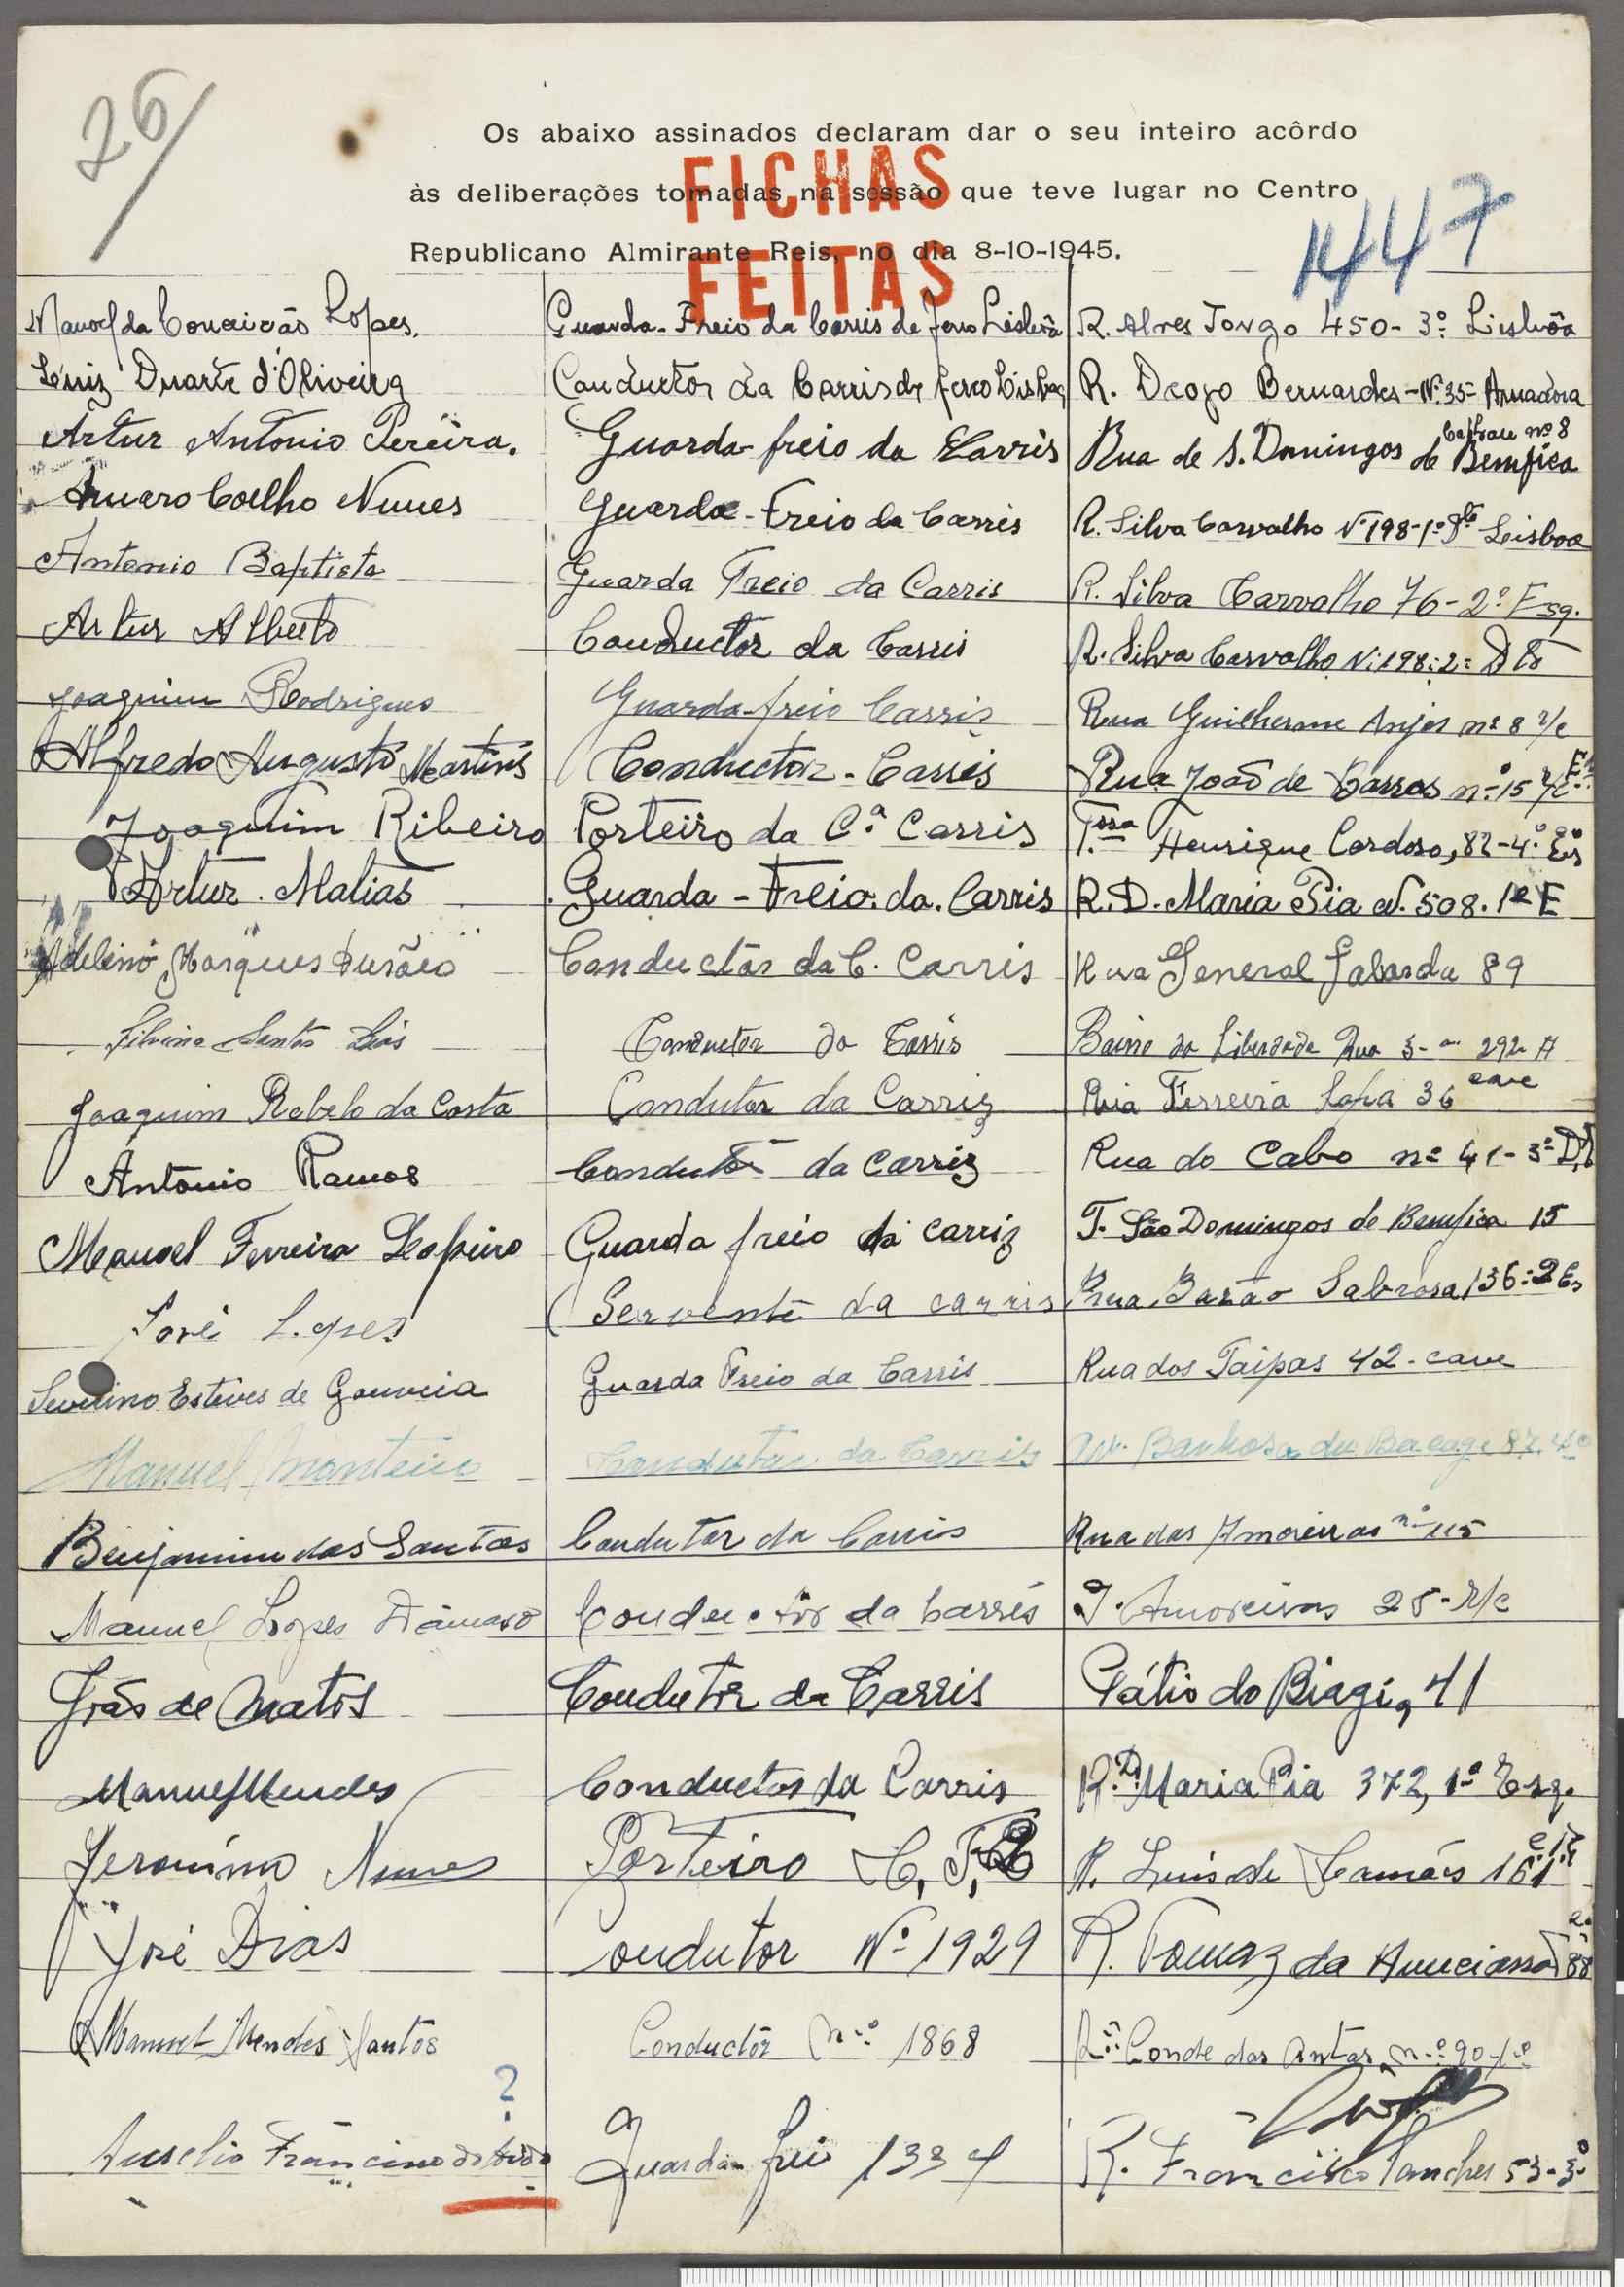 26
Os abaixo assinados declaram dar o seu inteiro acôrdo
às deliberações tomadas na sessão que teve lugar no Centro
Republicano Almirante Reis, no dia 8-10-1945.
FICHAS
FEITAS
1447
Manoel da Conceição Lopes. Guarda-Freio da Carris de ferro Lisbôa R. Alves Torgo 450-3º Lisbôa
Luiz Duarte d'Oliveira Conductor da Carris de ferro Lisboa R. Deogo Bernardes-Nº 35-Amadora
Artur Antonio Pereira. Guarda-freio da Carris Rua de S. Domingos de Bemfica nº 8
Amaro Coelho Nunes Guarda-Freio da Carris R. Silva Carvalho Nº 198-1º Dto Lisboa
Antonio Baptista Guarda Freio da Carris R. Silva Carvalho 76-2º Esq.
Artur Alberto Conductor da Carris R. Silva Carvalho Nº 198:2º Dto
Joaquim Rodrigues Guarda-freio Carris Rua Guilherme Anjos nº 8 r/c
Alfredo Augusto Martins Conductor-Carris Rua João de Barros nº 15 r/c
Joaquim Ribeiro Porteiro da Cª Carris T.ssa Henrique Cardoso, 82-4º
Artur. Matias Guarda-Freio. da. Carris R. D. Maria Pia N. 508. 1º E
Adelino Marques Durão Conductôr da C. Carris Rua General Tabarda 89
Santos Conductor da Carris Bairro da Liberdade Rua 292 A
Joaquim Rebelo da Costa Condutor da Carriz Rua Ferreira Lapa 36 cave
Antonio Ramos Condutor da Carriz Rua do Cabo nº 41-3º Dt
Manoel Ferreira Guarda freio da carriz T. São Domingos de Bemfica 15
José Lopes Servente da carris Rua Barão Sabrosa 136:2 Es
Severino Esteves de Gouveia Guarda Freio da Carris Rua dos Taipas 42-cave
Manuel Monteiro Condutor da Carris Barbosa du Bocage 87
Benjamim dos Santos Condutor da Carris Rua das Amoreiras nº 115
Manuel Lopes Dâmaso Condu.tôr da Carris T. Amoreiras 25-r/c
João de Matos Condutor da Carris Pátio do Biagi, 41
Manuel Mendes Conductor da Carris R. D. Maria Pia 372, 1º Esq.
Jeronimo Nunes Porteiro C, F, R. Luis de Camões 161
José Dias Condutor Nº 1929 R. Tomaz da Anunciassão 88
Manuel Mendes Santos Conductôr nº 1868 R. Conde das Antas nº 90-1º
?
Aurelio Francisco Guarda freio 1334 R. Francisco Sanches 53-3º